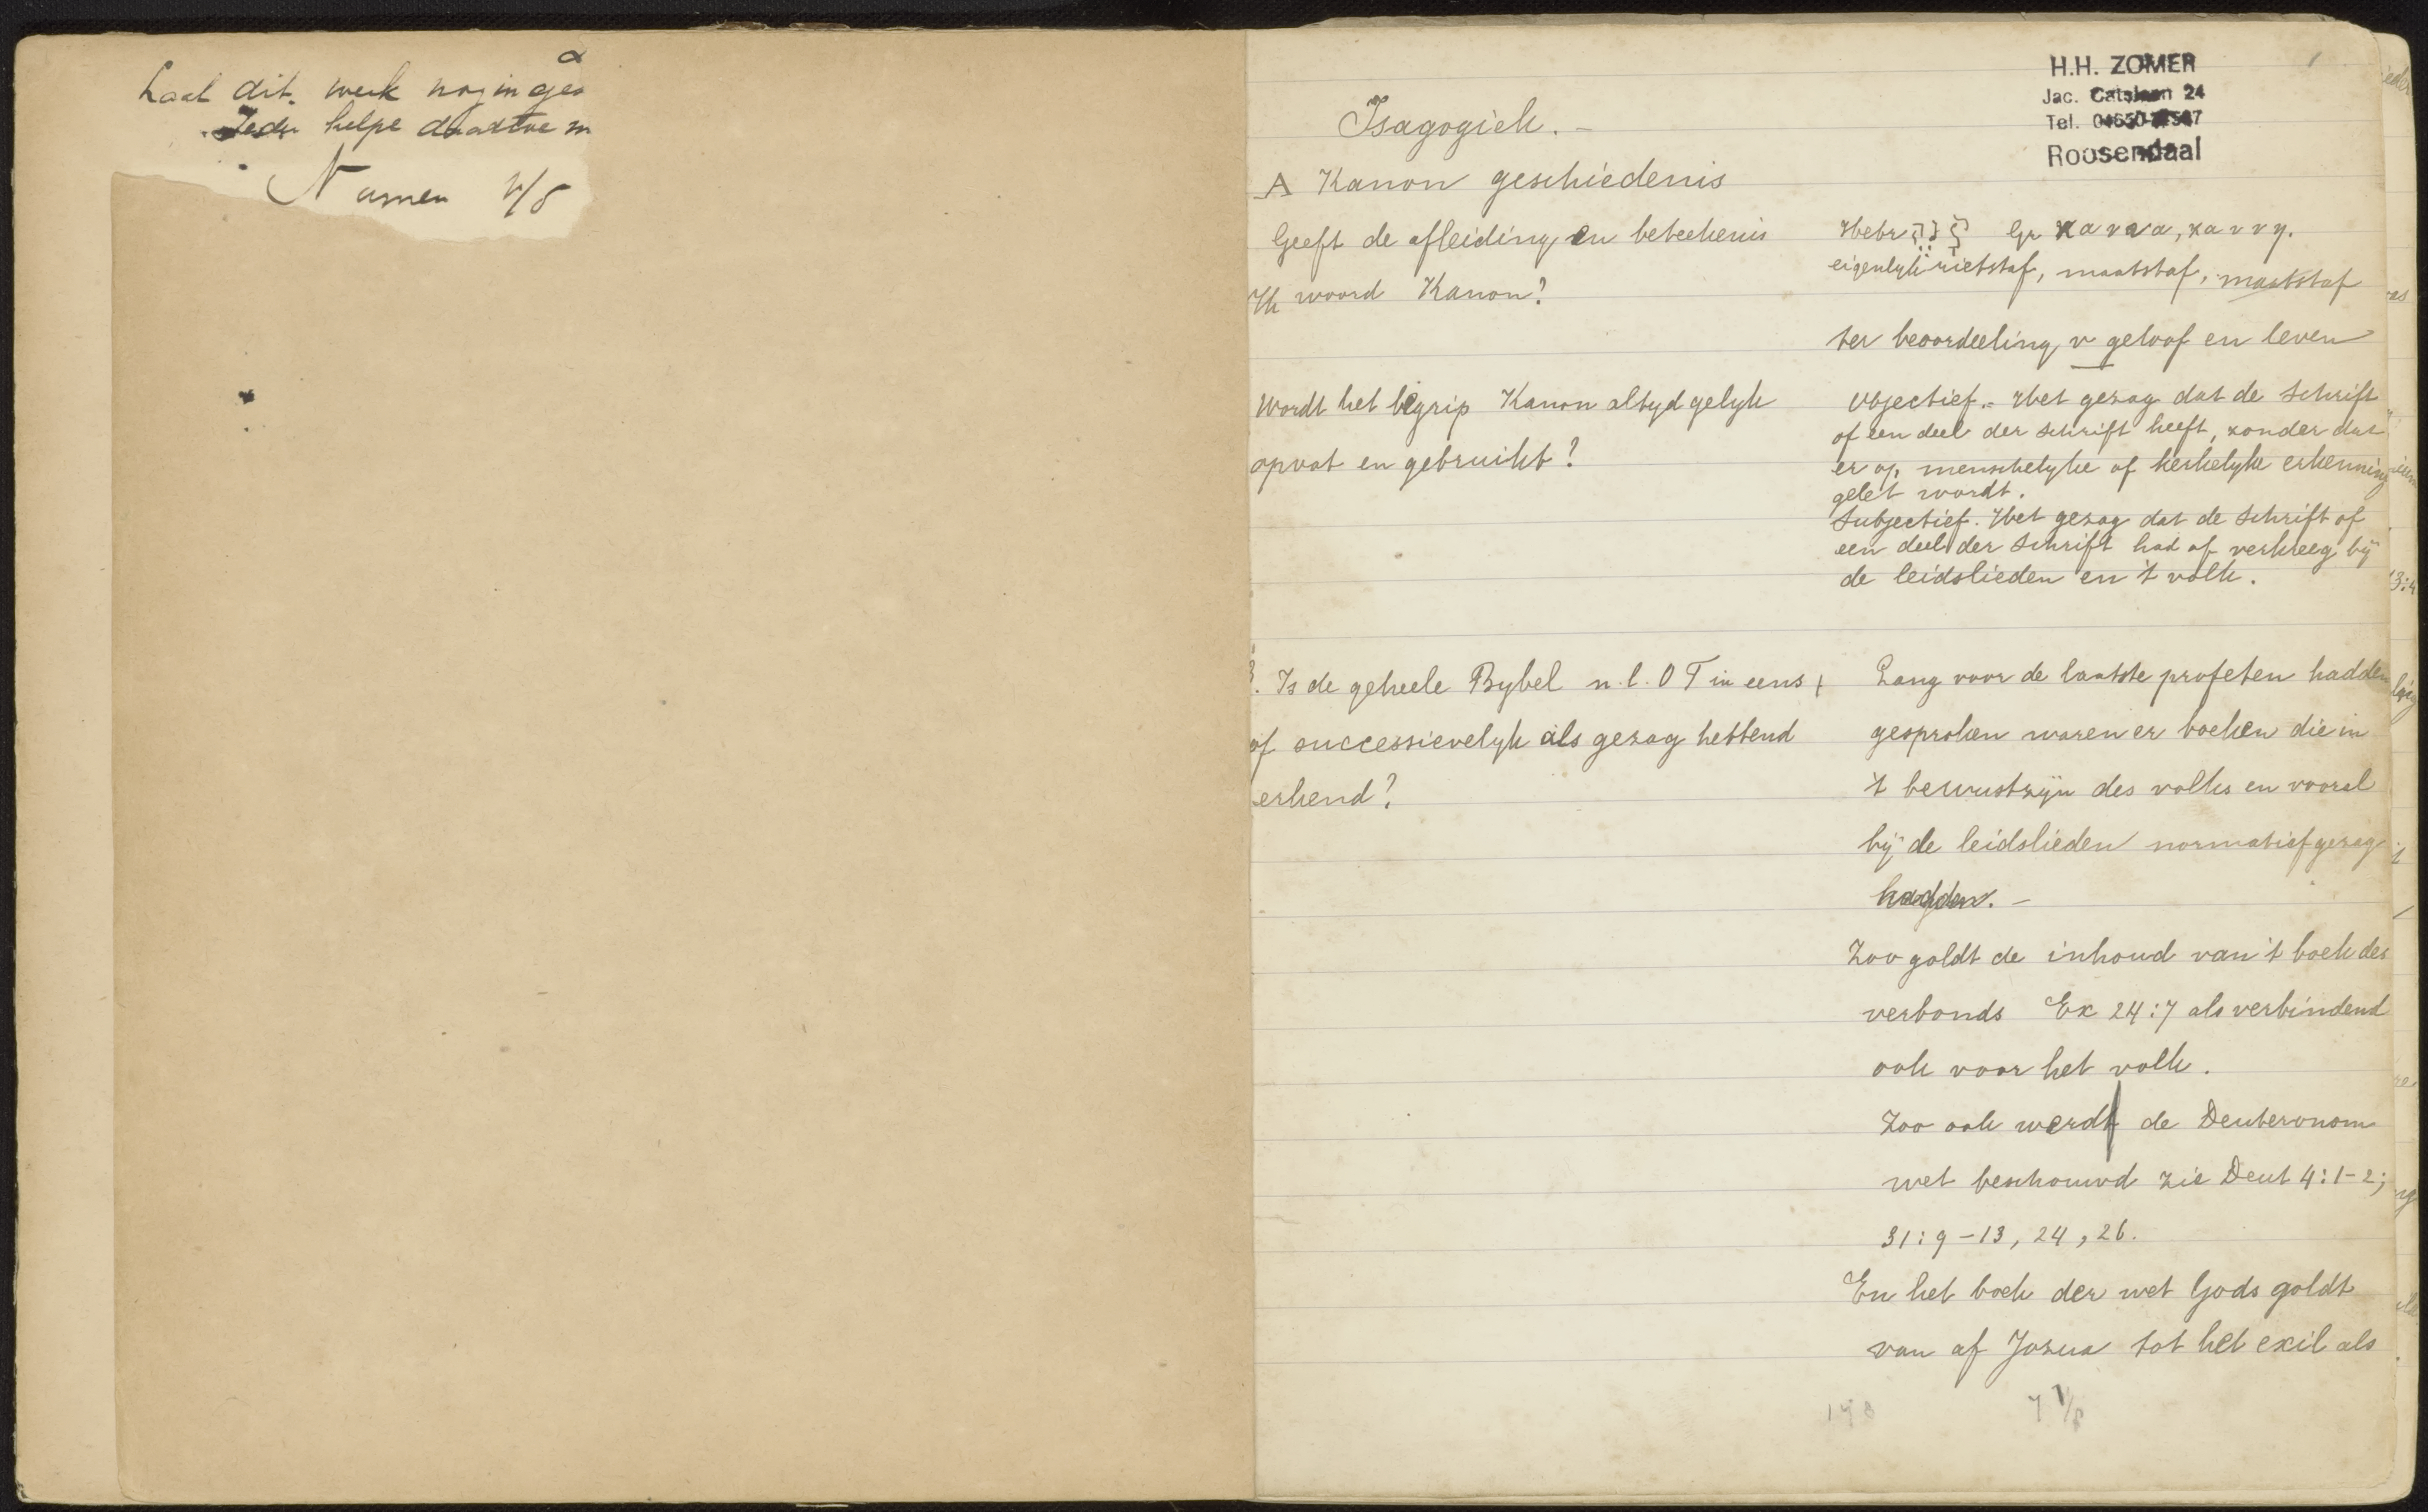 Laat dit werk nog in
helpe
Namen
H.H. ZOMER
Jac. Catslaan 24
Tel.
Roosendaal
1
Isagogiek. –
A Kanon geschiedenis
Geeft de afleiding en beteekenis
woord Kanon?
Hebr קנה Gr κανα, καννη.
eigenlyk rietstaf, maatstaf, maatstaf
ter beoordeeling v geloof en leven
Wordt het begrip Kanon altyd gelyk
opvat en gebruikt?
Objectief.- Het gezag dat de Schrift
of een deel der Schrift heeft, zonder dat
er op menschelyke of kerkelyke erkenning
gelet wordt.
Subjectief. Het gezag dat de Schrift of
een deel der Schrift had of verkreeg bij
de leidslieden en 't volk.
3. Is de geheele Bybel n.l. O T in eens
of successievelyk als gezag hebbend
erkend?
Lang voor de laatste profeten hadden
gesproken waren er boeken die in
't bewustzijn des volks en vooral
bij de leidslieden normatief gezag
hadden. –
Zoo goldt de inhoud van 't boek des
verbonds Ex 24:7 als verbindend
ook voor het volk.
Zoo ook werdt de Deuteronom
wet beschouwd zie Deut 4:1-2;
31:9-13, 24, 26.
En het boek der wet Gods goldt
van af Jozua tot het exil als